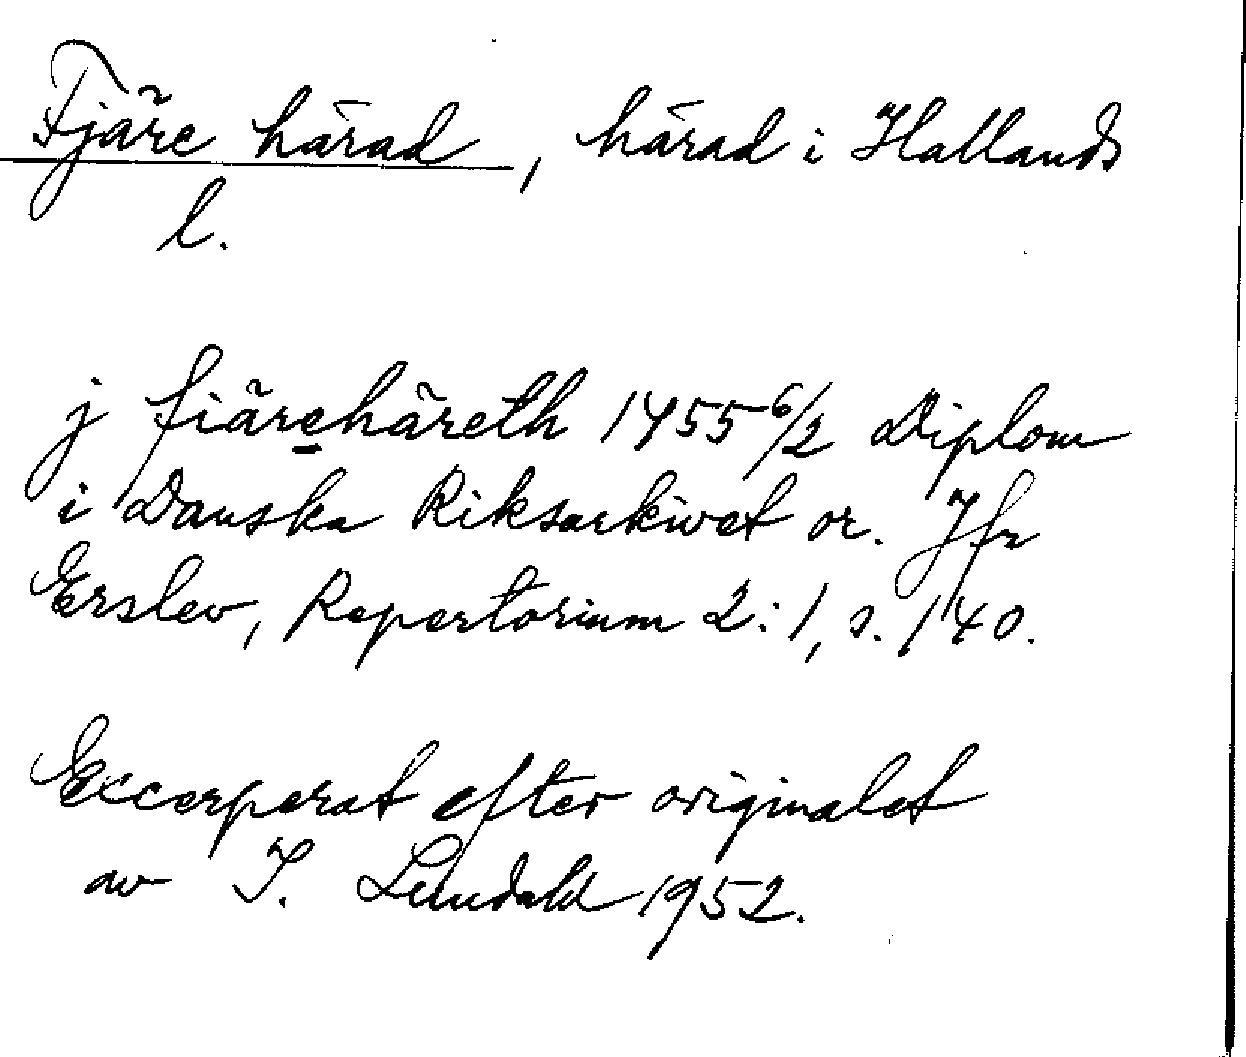 Fjäre härad, härad i Hallands
l.
j fiärehäreth 1455 6/2 Diplom
i Danska Riksarkivet or. Jfr
Erslev, Repertorium 2:1, s. 140.
Excerperat efter originalet
av I. Lundahl 1952.